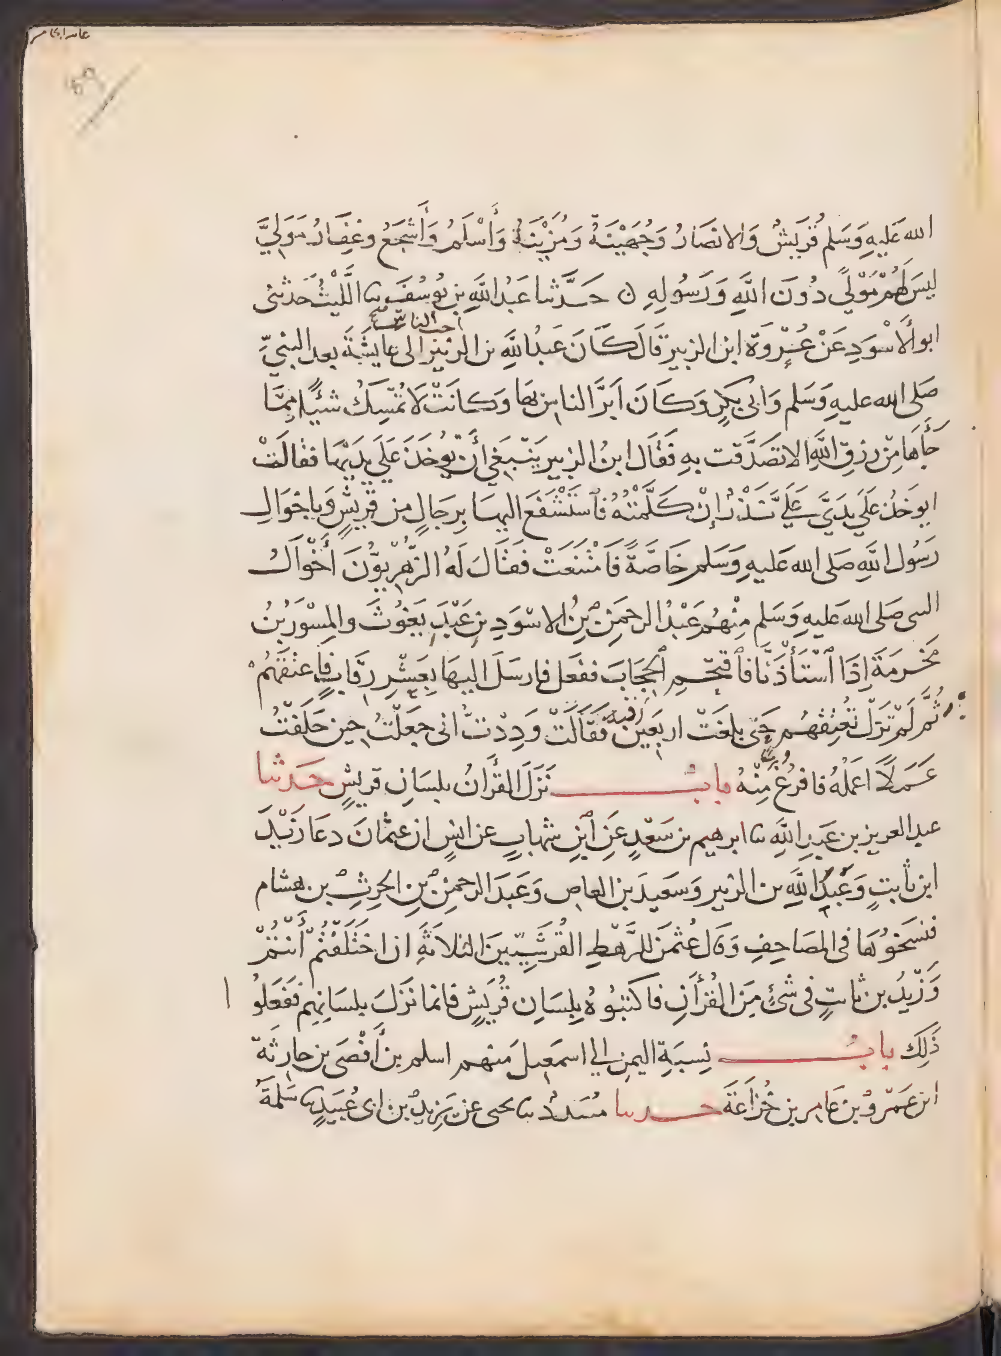 الله عَليهِ وَسَلم قُرَيشٌ وَالانصَارُ وَجُهَيْنَةُ وَمُزَيْنَةُ وَأسْلَمُ وَأشْجَعُ وغِفَارُ مَوَالِيَّ
ليسَ لَهُمْ مَوْلًي دُونَ اللَّهِ وَرَسُولِهِ ن حَدَّثنا عَبْدُ اللهِ بن يُوسُفَ نا اللَّيْثُ حَدثني
احب الناس
ابو الأسْوَدِ عَنْ عُرْوَة ابن الزبيرِ قَال كَانَ عَبْدُ اللَّهِ بن الزبَيْرِ الى عَايِشَةَ بعد النبيّ
صَلى الله عليهِ وَسَلم وَابي بَكْرٍ وَكَانَ ابَرَّ الناسِ بهَا وَكَانَتْ لَا تُمْسِكُ شَيْأً مِمَّا
جَأهَا مِنْ رِزقِ اللَّهِ الا تَصَدَّقت بهِ فَقَال ابنُ الزبيرِ يَنْبَغِي أنْ يُوخَذَ عَلَي يدَيْهَا فقالَتْ
ايوخَذُ عَلَي يَدَيَّ عَلَيَّ نَذْرٌ إنْ كَلَّمْتُهُ فَاسْتَشْفَعَ اليهَا بِرجَالٍ مِن قُرَيشٍ وَبِاخْوَالِ
رَسُول اللَّهِ صَلى الله عَليهِ وَسَلم خَاصَّةً فَامْتَنَعَتْ فَقَالَ لَهُ الزُّهْرِيُّونَ أخْوَالُ
النبي صَلى الله عليهِ وَسَلم مِنْهُم عَبْدُ الرحمَنِ بنُ الاسْوَدِ بنِ عَبْدِ يَغُوثَ والمِسْوَرُ بنُ
مَخْرَمَةَ إذَا اسْتَأْذَنَّا فَاقْتَحِمِ الحِجَابَ ففَعَلَ فارسَلَ اليهَا بِعَشْرِ رِقَابٍ فاعتقَهُمْ
رقبة
ثُمَّ لَمْ تزَلْ تُعْتِقهُم حَتى بلغَتْ اربَعِينَ فَقَالَتْ وَدِدْتُ انى جعَلْتُ حِينَ حَلَفْتُ
عَمَلًا اعمَلُهُ فافرُغُ مِنْهُ بابُ نَزَلَ القُرْآنُ بلسَانِ قريشٍ حَدثنا
عبد العزيز بن عَبدِ اللَّهِ نا ابرهيم بن سَعْدٍ عَنِ ابْنِ شهابٍ عن انَسٍ ان عثمَانَ دعَا زيْدَ
ابن ثابتٍ وَعَبْدَ اللَّهِ بن الزبير وَسَعيدَ بن العاص وَعَبدَ الرحمنِ بنَ الحرِثِ بن هشام
فنسَخوُهَا فى المصَاحِفِ وَقَال عُثمنَ للرَّهْطِ القُرَشِيّينَ الثلاثةِ اذا اخْتَلَفْتُمْ أنْتُمْ
وَزَيْدُ بن ثابتٍ في شَئٍ مِنَ القُرْآنِ فاكتبُوهُ بِلِسَانِ قُرَيْشٍ فانما نَزَلَ بلسَانِهِم فَفَعَلُوا
ذَلِكَ بابُ نِسبَةِ اليمَنِ الي اسمَعِيلَ مِنهم اسلم بن أفْصَى بن حارِثةَ
ابن عَمْرِو بن عَامِر بن خُزَاعَةَ حدثنا مُسَدَّدُ نا يحيى عن يَزيدَ بن ابى عُبَيْدٍ نا سَلمَةُ